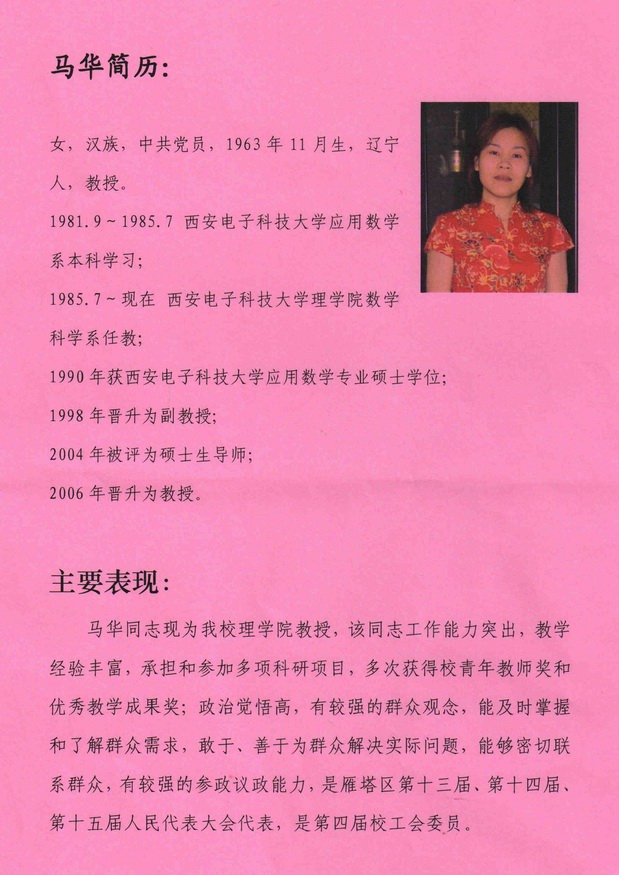 马华简历：
女，汉族，中共党员，1963 年 11 月生，辽宁
人，教授。
1981.9～1985.7 西安电子科技大学应用数学
系本科学习；
1985.7～现在 西安电子科技大学理学院数学
科学系任教；
1990 年获西安电子科技大学应用数学专业硕士学位；
1998 年晋升为副教授；
2004 年被评为硕士生导师；
2006 年晋升为教授。
主要表现：
马华同志现为我校理学院教授，该同志工作能力突出，教学
经验丰富，承担和参加多项科研项目，多次获得校青年教师奖和
优秀教学成果奖；政治觉悟高，有较强的群众观念，能及时掌握
和了解群众需求，敢于、善于为群众解决实际问题，能够密切联
系群众，有较强的参政议政能力，是雁塔区第十三届、第十四届、
第十五届人民代表大会代表，是第四届校工会委员。